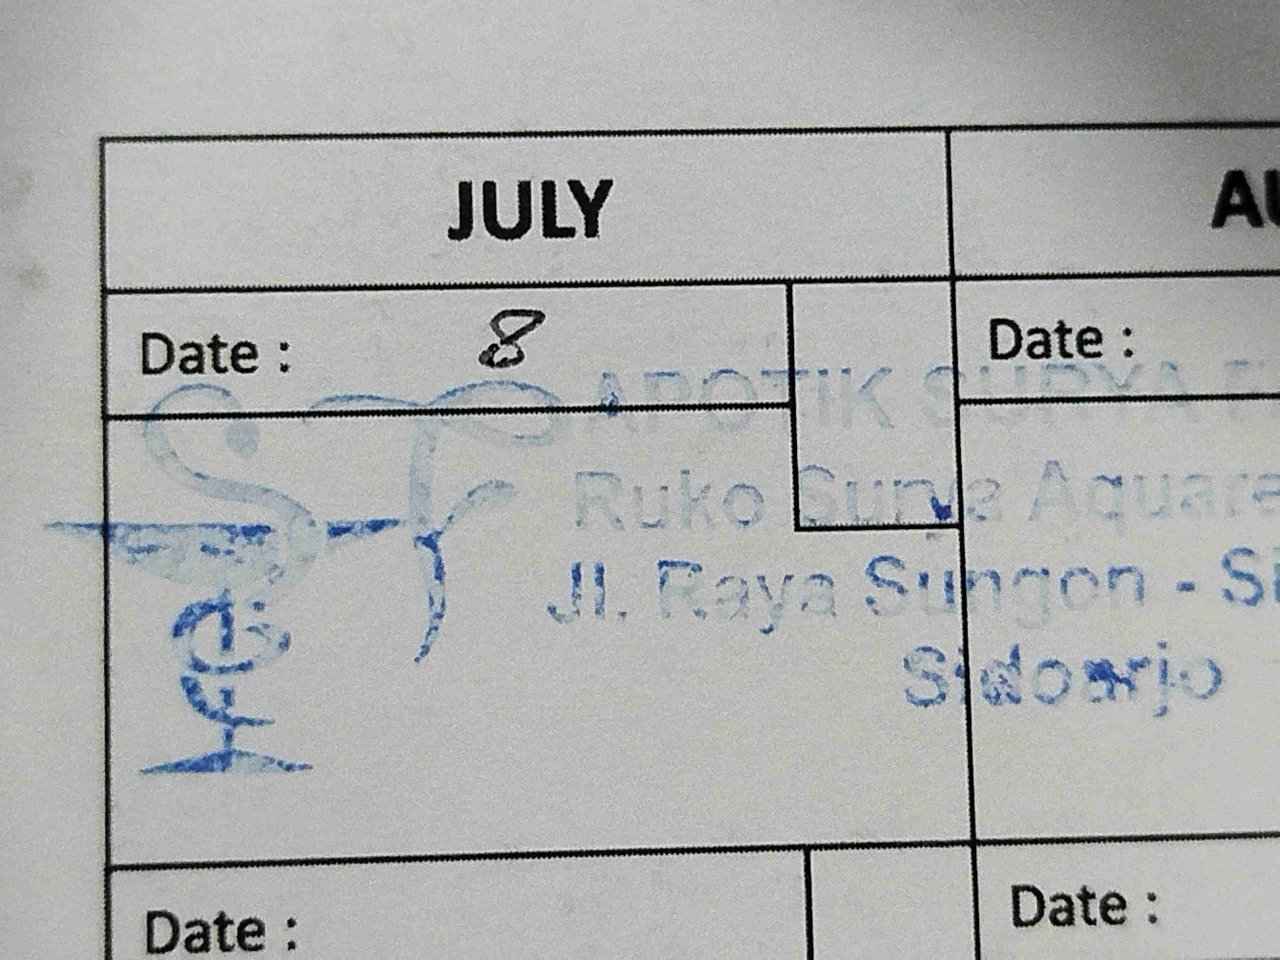 JULY
AU
Date : 8
Date :
APOTIK SURYA
Ruko Surya Aquare
Jl. Raya Sungon - Si
Sidoarjo
Date :
Date :